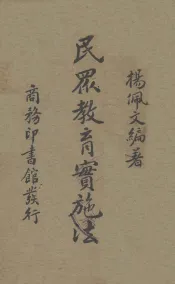 楊佩文編著
民眾教育實施法
商務印書館發行